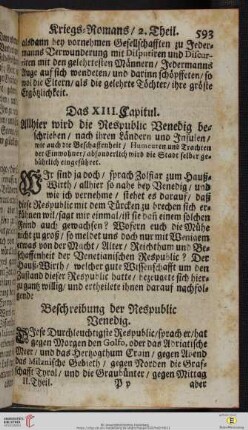 Kriegs-Romans / 2. Theil. 593
alsdann bey vornehmen Gesellschafften zu Jeder-
manns Verwunderung mit Disputiren und Discur-
riren mit den gelehrtesten Männern / Jedermanns
Auge auf sich wendeten / und darinn schöpffeten / so
wol die Eltern / als die gelehrte Töchter / ihre gröste
Ergötzlichkeit.
Das XIII. Capitul.
Allhier wird die Respublic Venedig be-
schrieben / nach ihren Ländern und Insulen /
wie auch die Beschaffenheit / Humeuren und Trachten
der Einwohner / absonderlich wird die Stadt selber ge-
bührlich eingeführet.
WIr sind ja doch / sprach Zolfiar zum Hauß-
Wirth / allhier so nahe bey Venedig / und
wie ich vernehme / stehet es darauf / daß
diese Respublic mit dem Türcken zu brechen sich er-
kühnen wil / sagt mir einmal / ist sie daß einem solchen
Feind auch gewachsen? Wofern euch die Mühe
nicht zu groß / so meldet uns doch nur mit Wenigem
etwas von der Macht / Alter / Reichthum und Be-
schaffenheit der Venetianischen Respublic? Der
Hauß-Wirth / welcher gute Wissenschafft um den
Zustand dieser Respublic hatte / bezeugete sich hier-
zu gantz willig / und ertheilete ihnen darauf nachfol-
gende
Beschreibung der Respublic
Venedig.
DIese Durchleuchtigste Respublic / sprach er / hat
gegen Morgen den Golfo, oder das Adriatische
Meer / und das Hertzogthum Crain / gegen Abend
das Milänische Gebieth / gegen Norden die Graf-
schafft Tyrol / und die Graubünter / gegen Mittag
II. Theil. P p aber